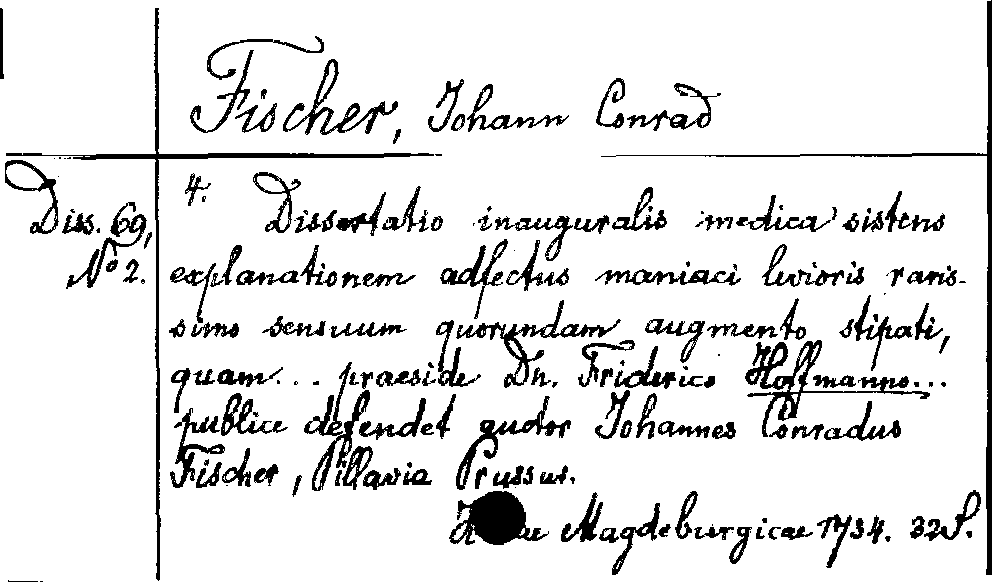 Fischer, Johann Conrad
Diss. 69,
No 2.
4. Dissertatio inauguralis medica sistens
explanationem adfectus maniaci levioris raris-
simo sensuum quorundam augmento stipati,
quam... praeside Dn. Friderico Hoffmanno...
publice defendet auctor Johannes Conradus
Fischer, Pillavia Prussus.
Magdeburgicae 1734. 32 S.